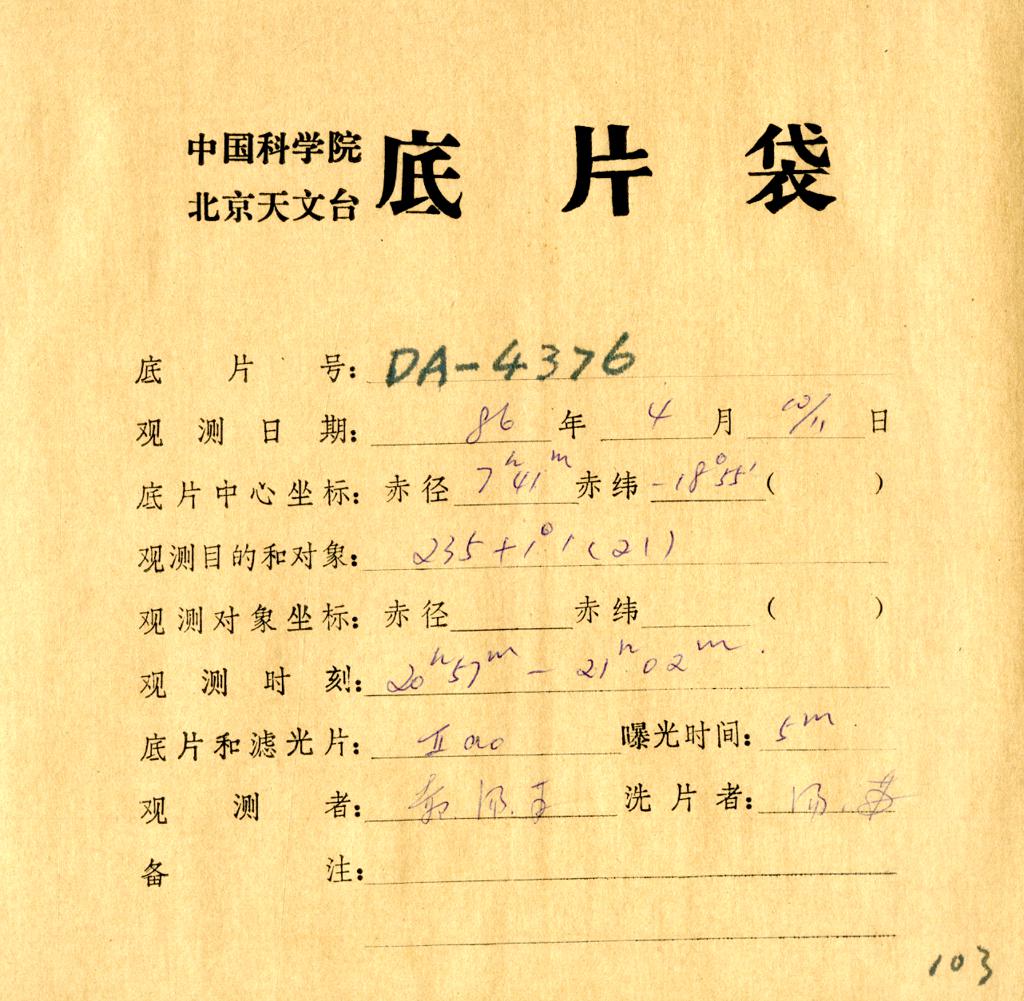 中国科学院
北京天文台
底片袋
底片号: DA-4376
观测日期: 86年 4月 10/11日
底片中心坐标: 赤径 7h41m 赤纬 -18°55′ ( )
观测目的和对象: 235+1°1(21)
观测对象坐标: 赤径 赤纬 ( )
观测时刻: 20h57m - 21h02m.
底片和滤光片: IIao 曝光时间: 5m.
观测者: 洗片者:
备注:
103